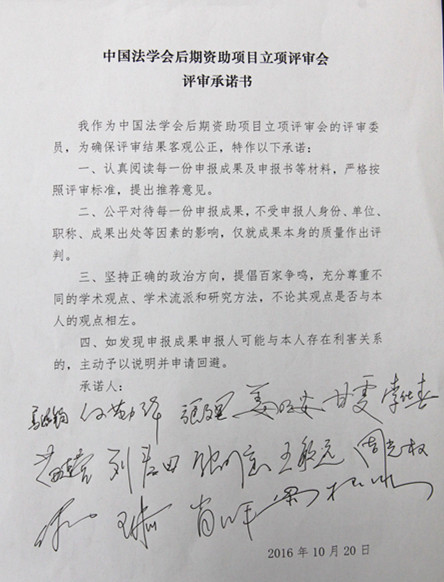 中国法学会后期资助项目立项评审会
评审承诺书
我作为中国法学会后期资助项目立项评审会的评审委
员，为确保评审结果客观公正，特作以下承诺：
一、认真阅读每一份申报成果及申报书等材料，严格按
照评审标准，提出推荐意见。
二、公平对待每一份申报成果，不受申报人身份、单位、
职称、成果出处等因素的影响，仅就成果本身的质量作出评
判。
三、坚持正确的政治方向，提倡百家争鸣，充分尊重不
同的学术观点、学术流派和研究方法，不论其观点是否与本
人的观点相左。
四、如发现申报成果申报人可能与本人存在利害关系
的，主动予以说明并申请回避。
承诺人：
甘雯 李仕春
王敬 周光权
2016 年 10 月 20 日